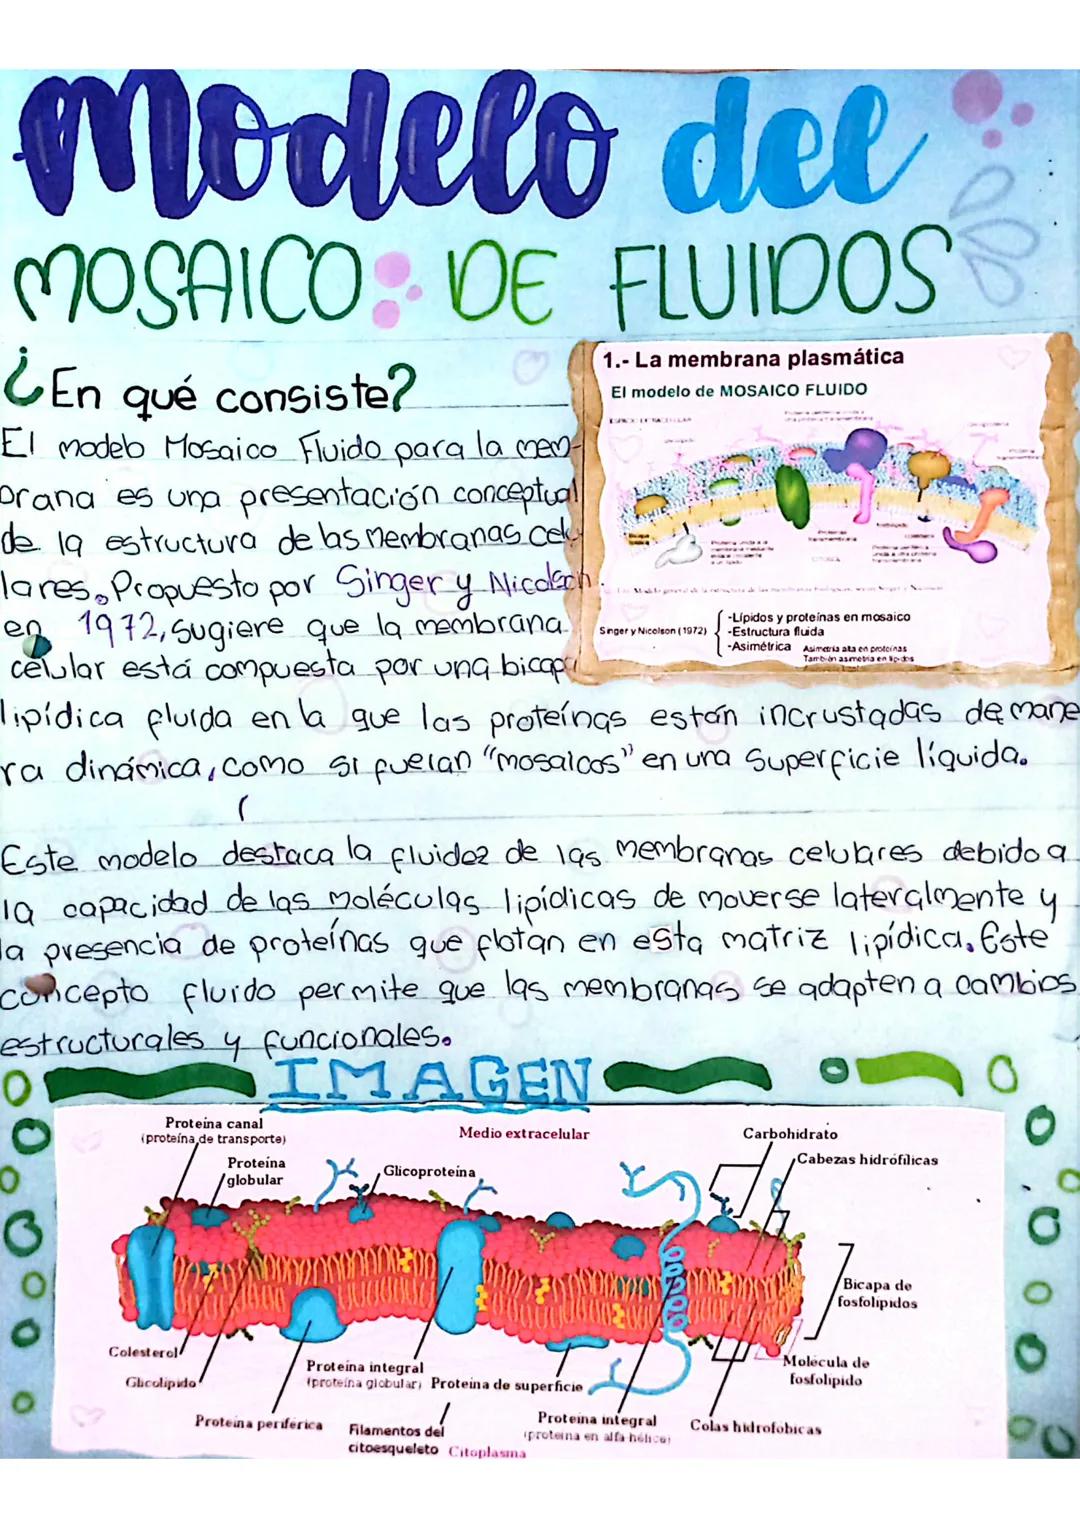 Modelo del
MOSAICO DE FLUIDOS
¿En qué consiste?
El modelo Mosaico Fluido para la mem-
brana es una presentación conceptual
de la estructura de las membranas celu
lares. Propuesto por Singer y Nicolson
en 1972, sugiere que la membrana
celular está compuesta por una bicapa
lipídica fluida en la que las proteínas están incrustadas de mane
ra dinámica, como si fueran "mosaicos" en una superficie líquida.
1.- La membrana plasmática
El modelo de MOSAICO FLUIDO
Singer y Nicolson (1972)
-Lípidos y proteínas en mosaico
-Estructura fluida
-Asimétrica
Asimetría alta en proteínas
También asimetría en lípidos
Este modelo destaca la fluidez de las membranas celulares debido a
la capacidad de las moléculas lipídicas de moverse lateralmente y
la presencia de proteínas que flotan en esta matriz lipídica. Este
concepto fluido permite que las membranas se adapten a cambios
estructurales y funcionales.
IMAGEN
Proteína canal
(proteína de transporte)
Medio extracelular
Carbohidrato
Proteína
globular
Glicoproteína
Cabezas hidrófílicas
Bicapa de
fosfolípidos
Colesterol
Glicolípido
Proteína integral
(proteína globular)
Proteína de superficie
Molécula de
fosfolípido
Proteína periférica
Filamentos del
citoesqueleto
Citoplasma
Proteína integral
(proteína en alfa hélice)
Colas hidrofóbicas